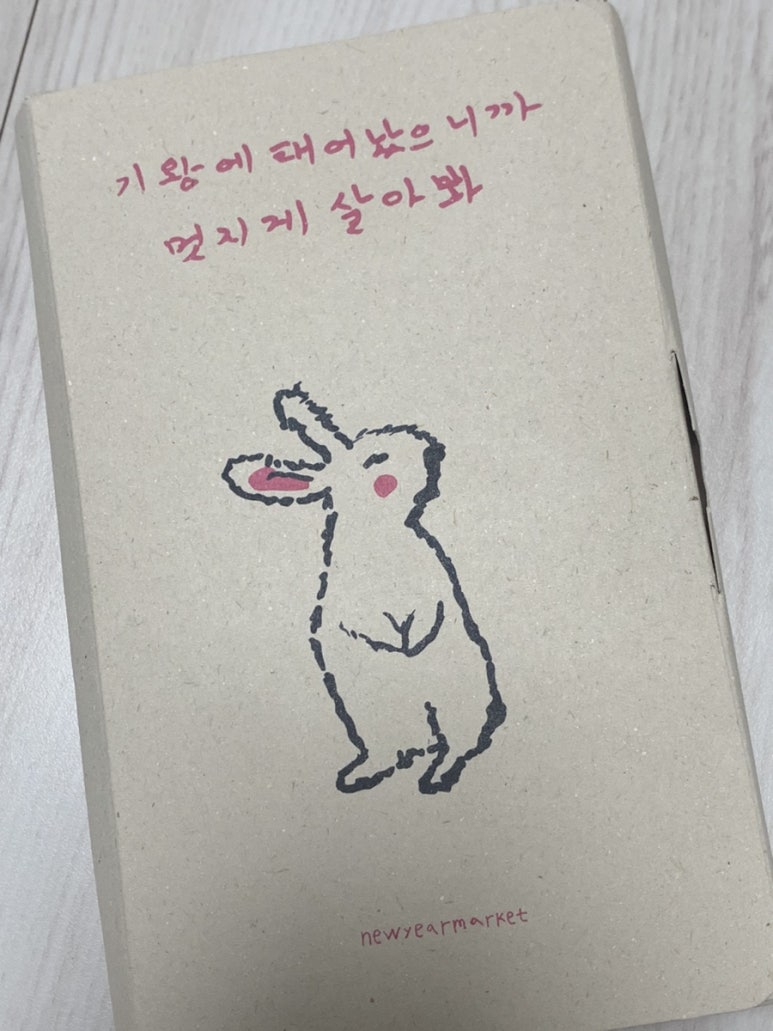 기왕에 태어났으니까
멋지게 살아봐
newyearmarket